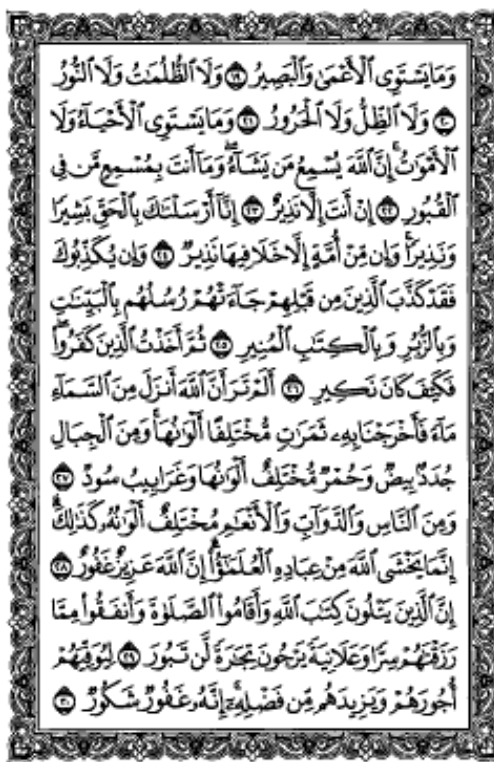 وَمَا يَسْتَوِي ٱلْأَعْمَىٰ وَٱلْبَصِيرُ ۝١٩ وَلَا ٱلظُّلُمَٰتُ وَلَا ٱلنُّورُ
۝٢٠ وَلَا ٱلظِّلُّ وَلَا ٱلْحَرُورُ ۝٢١ وَمَا يَسْتَوِي ٱلْأَحْيَآءُ وَلَا
ٱلْأَمْوَٰتُ ۚ إِنَّ ٱللَّهَ يُسْمِعُ مَن يَشَآءُ ۖ وَمَآ أَنتَ بِمُسْمِعٍ مَّن فِي
ٱلْقُبُورِ ۝٢٢ إِنْ أَنتَ إِلَّا نَذِيرٌ ۝٢٣ إِنَّآ أَرْسَلْنَٰكَ بِٱلْحَقِّ بَشِيرًا
وَنَذِيرًا ۚ وَإِن مِّنْ أُمَّةٍ إِلَّا خَلَا فِيهَا نَذِيرٌ ۝٢٤ وَإِن يُكَذِّبُوكَ
فَقَدْ كَذَّبَ ٱلَّذِينَ مِن قَبْلِهِمْ جَآءَتْهُمْ رُسُلُهُم بِٱلْبَيِّنَٰتِ
وَبِٱلزُّبُرِ وَبِٱلْكِتَٰبِ ٱلْمُنِيرِ ۝٢٥ ثُمَّ أَخَذْتُ ٱلَّذِينَ كَفَرُوا۟ ۖ
فَكَيْفَ كَانَ نَكِيرِ ۝٢٦ أَلَمْ تَرَ أَنَّ ٱللَّهَ أَنزَلَ مِنَ ٱلسَّمَآءِ
مَآءً فَأَخْرَجْنَا بِهِۦ ثَمَرَٰتٍ مُّخْتَلِفًا أَلْوَٰنُهَا ۚ وَمِنَ ٱلْجِبَالِ
جُدَدٌۢ بِيضٌ وَحُمْرٌ مُّخْتَلِفٌ أَلْوَٰنُهَا وَغَرَابِيبُ سُودٌ ۝٢٧
وَمِنَ ٱلنَّاسِ وَٱلدَّوَآبِّ وَٱلْأَنْعَٰمِ مُخْتَلِفٌ أَلْوَٰنُهُۥ كَذَٰلِكَ ۗ
إِنَّمَا يَخْشَى ٱللَّهَ مِنْ عِبَادِهِ ٱلْعُلَمَٰٓؤُا۟ ۗ إِنَّ ٱللَّهَ عَزِيزٌ غَفُورٌ ۝٢٨
إِنَّ ٱلَّذِينَ يَتْلُونَ كِتَٰبَ ٱللَّهِ وَأَقَامُوا۟ ٱلصَّلَوٰةَ وَأَنفَقُوا۟ مِمَّا
رَزَقْنَٰهُمْ سِرًّا وَعَلَانِيَةً يَرْجُونَ تِجَٰرَةً لَّن تَبُورَ ۝٢٩ لِيُوَفِّيَهُمْ
أُجُورَهُمْ وَيَزِيدَهُم مِّن فَضْلِهِۦٓ ۚ إِنَّهُۥ غَفُورٌ شَكُورٌ ۝٣٠